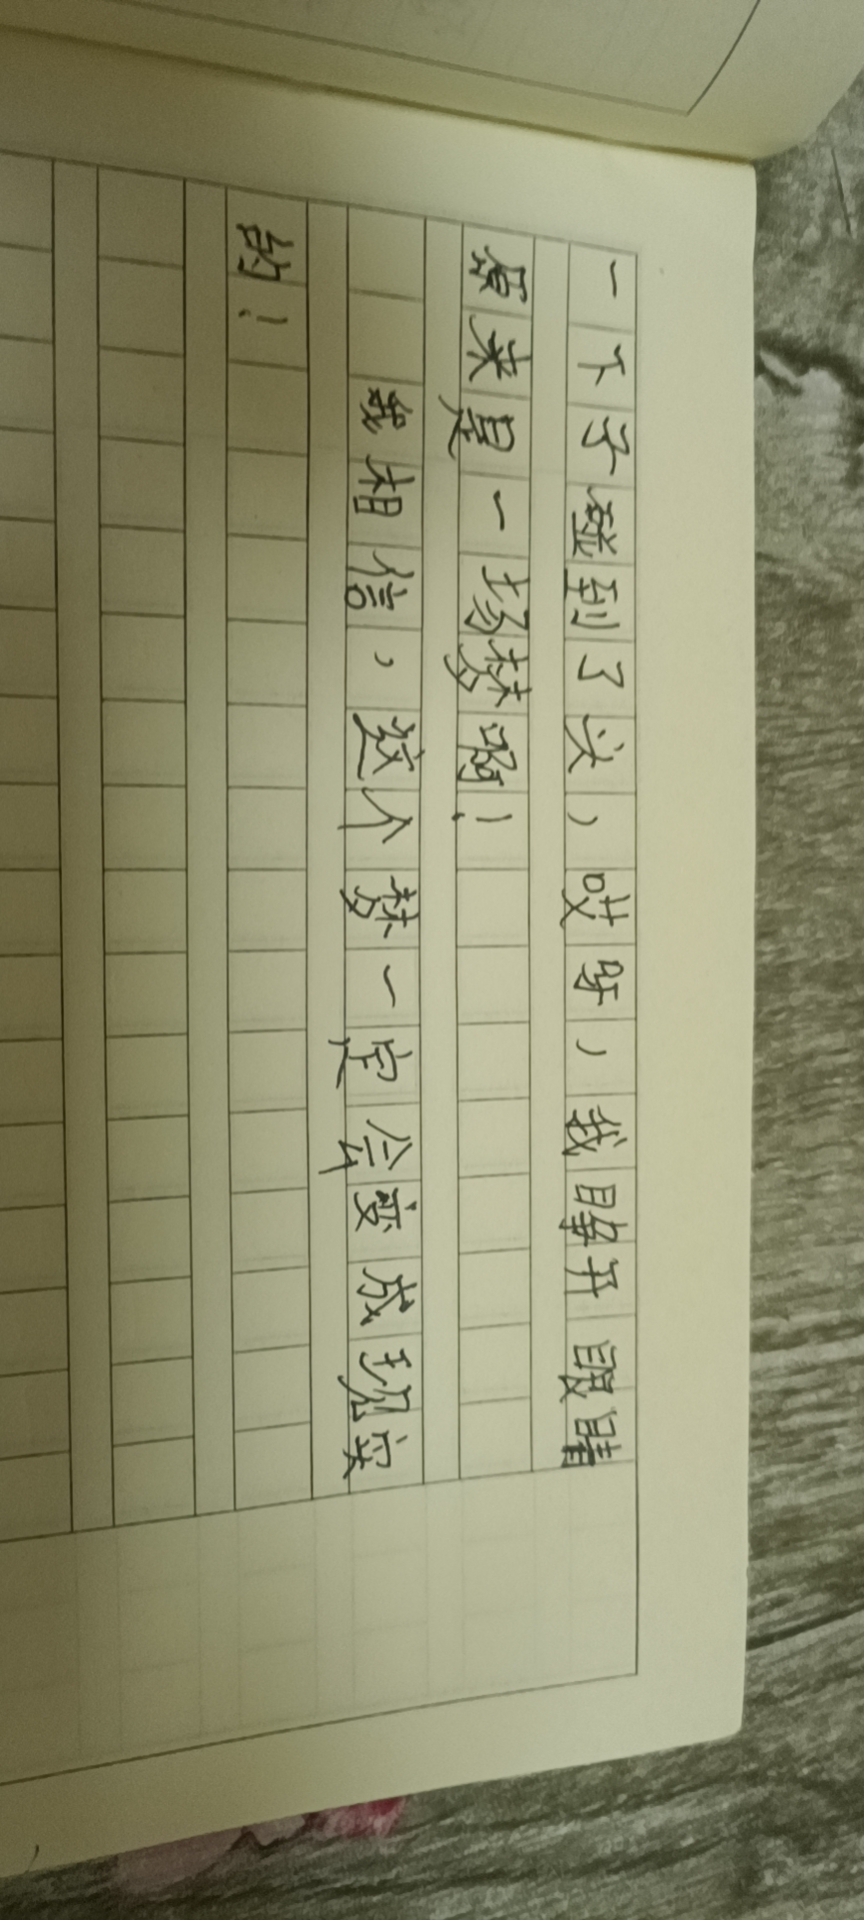 一下子碰到了头，哎呀，我睁开眼睛
原来是一场梦啊！
我相信，这个梦一定会变成现实
的！